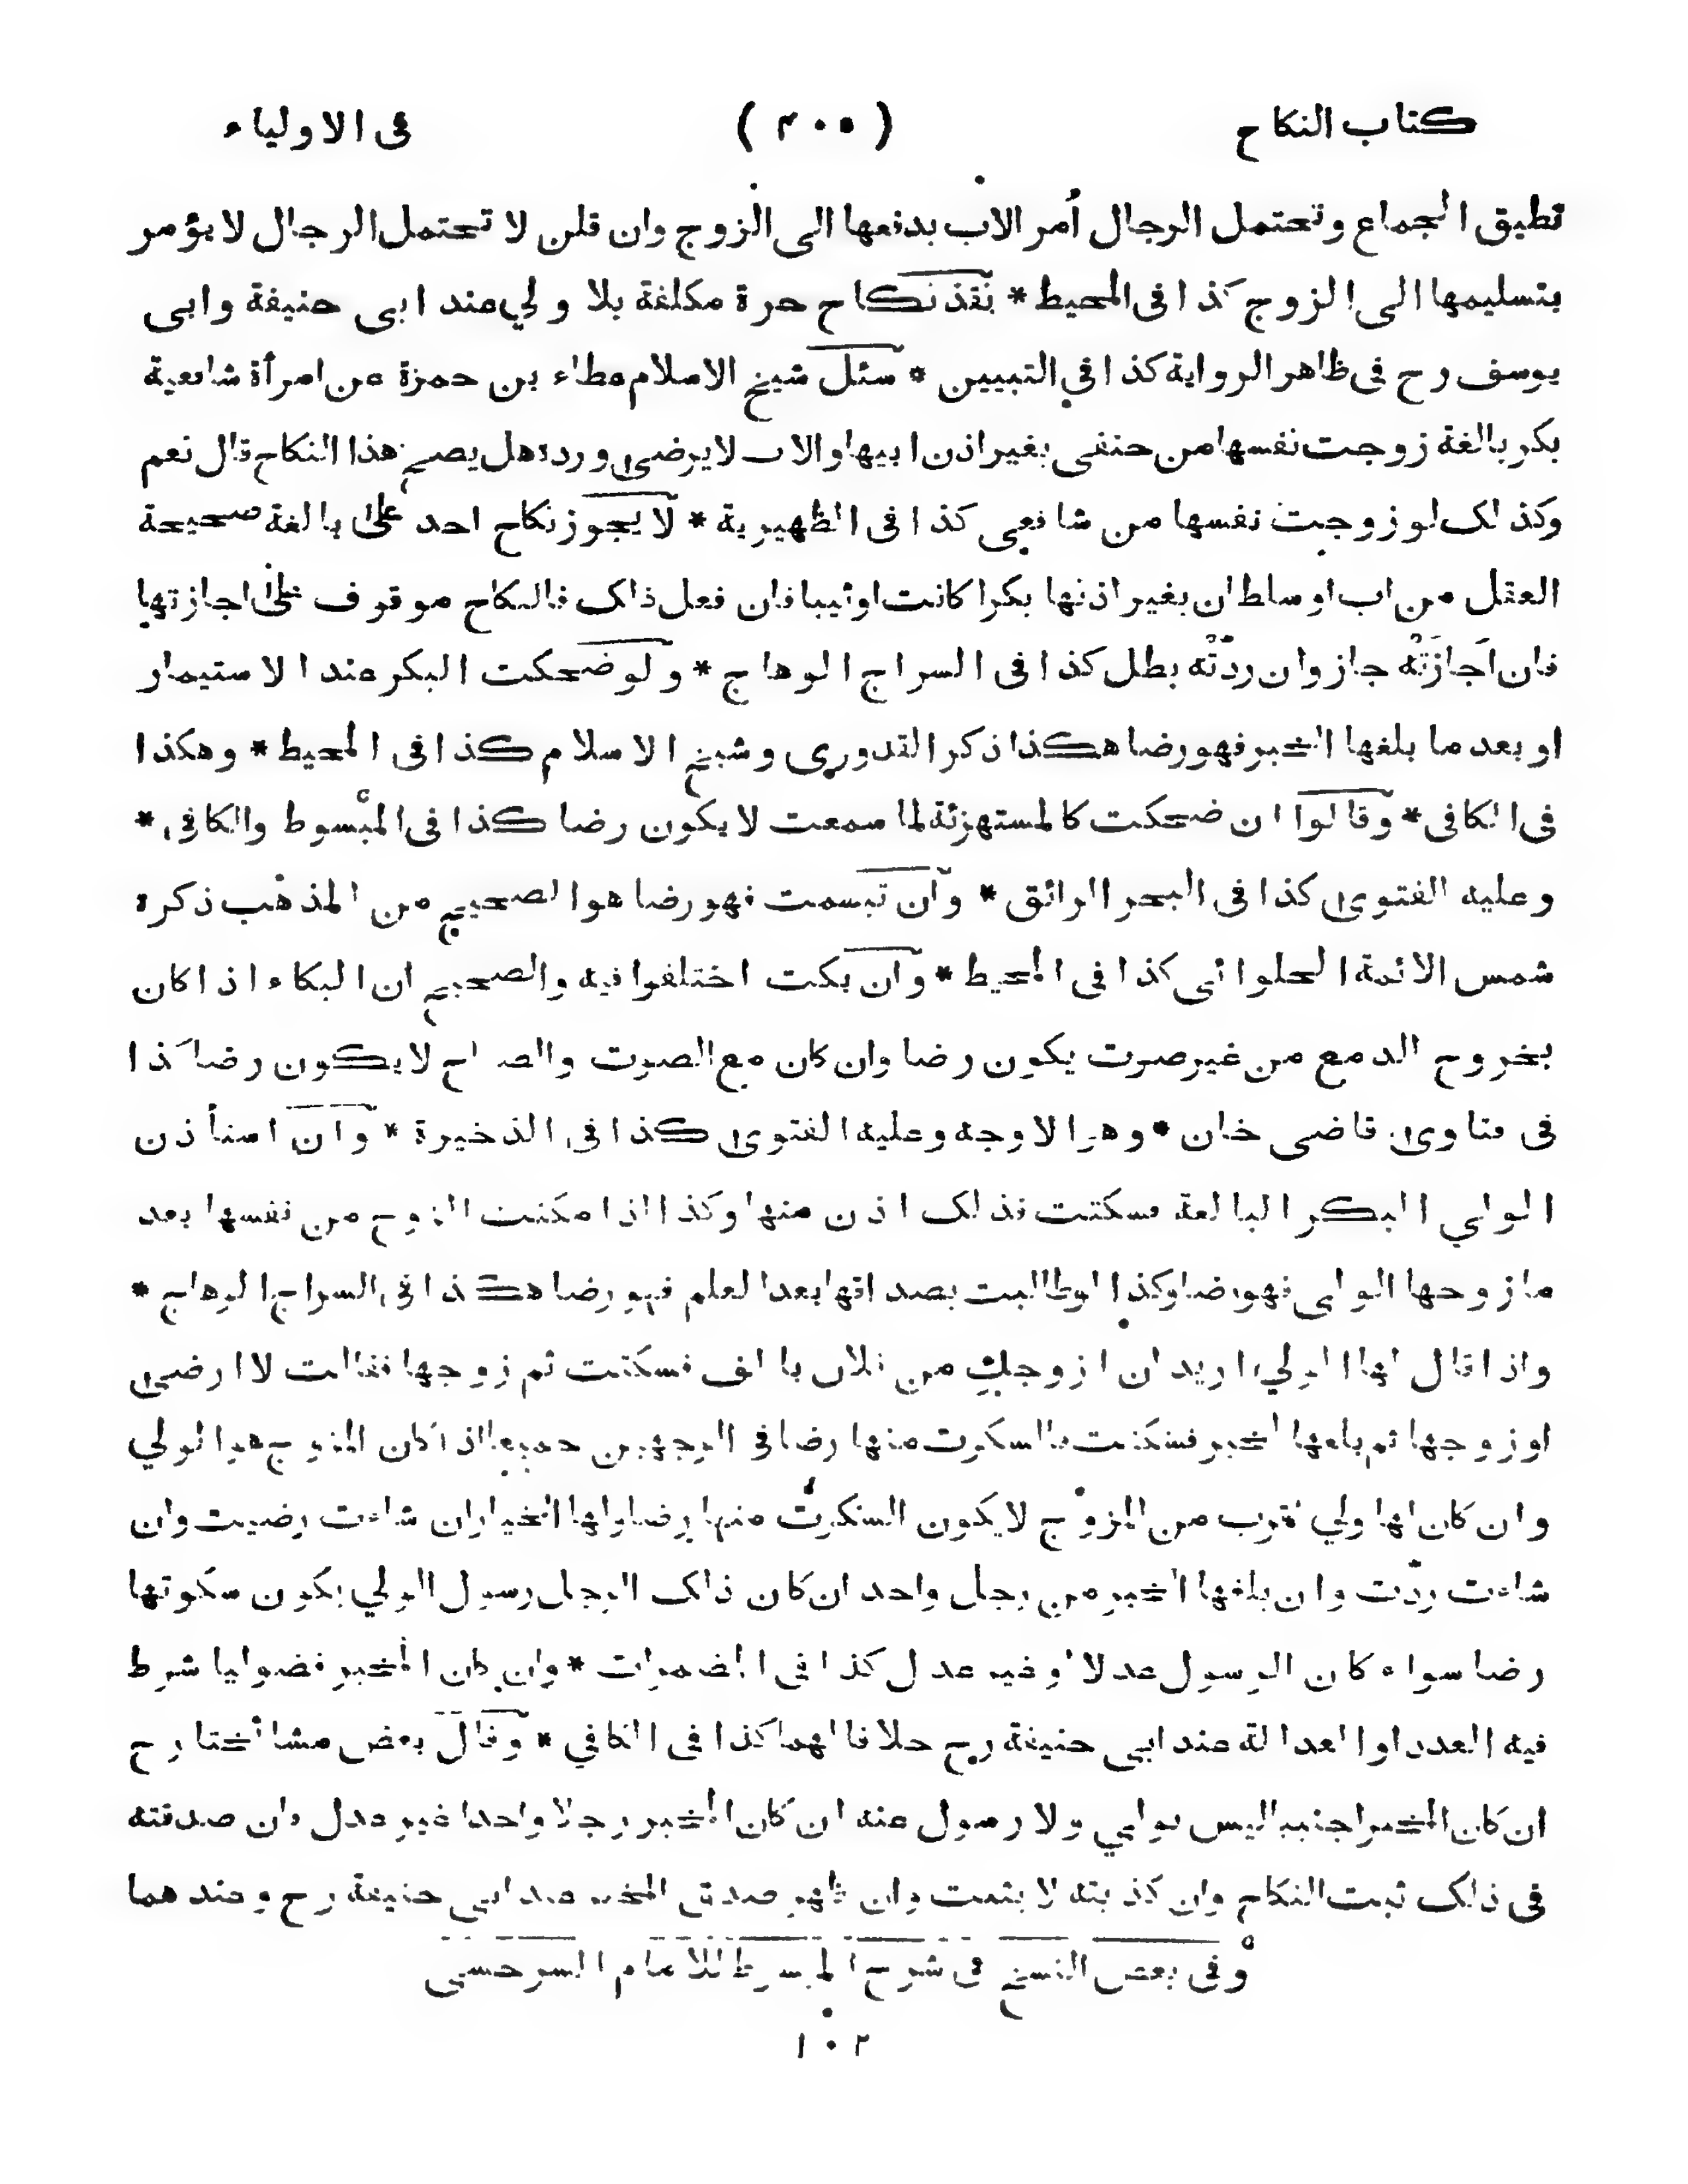 كتاب النكاح ( ٤٠٥ ) فى الاولياء
تطيق الجماع وتحتمل الرجال أمر الاب بدفعها الى الزوج وان قلن لا تحتمل الرجال لا يؤمر
بتسليمها الى الزوج كذا فى المحيط * نفذ نكاح حرة مكلفة بلا ولي عند ابى حنيفة وابى
يوسف رح فى ظاهر الرواية كذا في التبيين * سئل شيخ الاسلام عطاء بن حمزة عن امرأة شافعية
بكر بالغة زوجت نفسها من حنفى بغير اذن ابيها والاب لا يرضى ورده هل يصح هذا النكاح قال نعم
وكذلك لو زوجت نفسها من شافعي كذا فى الظهيرية * لا يجوز نكاح احد على بالغة صحيحة
العقل من اب او سلطان بغير اذنها بكرا كانت او ثيبا فان فعل ذلك فالنكاح موقوف على اجازتها
فان اَجازَتْه جاز وان ردّتْه بطل كذا فى السراج الوهاج * ولو ضحكت البكر عند الاستيمار
او بعد ما بلغها الخبر فهو رضا هكذا ذكر القدوري وشيخ الاسلام كذا فى المحيط * وهكذا
فى الكافى * وقالوا ان ضحكت كالمستهزئة لما سمعت لا يكون رضا كذا فى المبسوط والكافي *
وعليه الفتوى كذا فى البحر الرائق * وان تبسمت فهو رضا هو الصحيح من المذهب ذكره
شمس الائمة الحلوائى كذا فى المحيط * وان بكت اختلفوا فيه والصحيح ان البكاء اذا كان
بخروج الدمع من غير صوت يكون رضا وان كان مع الصوت والصياح لا يكون رضا كذا
فى فتاوى قاضى خان * وهو الاوجه وعليه الفتوى كذا فى الذخيرة * وان استأذن
الولي البكر البالغة فسكتت فذلك اذن منها وكذا اذا مكنت الزوج من نفسها بعد
ما زوجها الولى فهو رضا وكذا لو طالبت بصداقها بعد العلم فهو رضا هكذا فى السراج الوهاج *
واذا قال لها الولي اريد ان ازوجكِ من فلان بالف فسكتت ثم زوجها فقالت لا ارضى
او زوجها ثم بلغها الخبر فسكتت فالسكوت منها رضا فى الوجهين جميعا اذا كان المزوج هو الولي
وان كان لها ولي اقرب من المزوج لا يكون السكوت منها رضا ولها الخيار ان شاءت رضيت وان
شاءت ردّت وان بلغها الخبر من رجل واحد ان كان ذلك الرجل رسول الولي يكون سكوتها
رضا سواء كان الرسول عدلا او غير عدل كذا فى المضمرات * وان كان المخبر فضوليا شرط
فيه العدد او العدالة عند ابى حنيفة رح خلافا لهما كذا فى الكافي * وقال بعض مشائخنا رح
ان كان المخبر اجنبيا ليس بولي ولا رسول عنه ان كان المخبر رجلا واحدا غير عدل فان صدقته
فى ذلك ثبت النكاح وان كذبته لا يثبت وان ظهر صدق المخبر عند ابى حنيفة رح وعندهما
وفى بعض النسخ فى شرح المبسوط للامام السرخسى
١٠٢